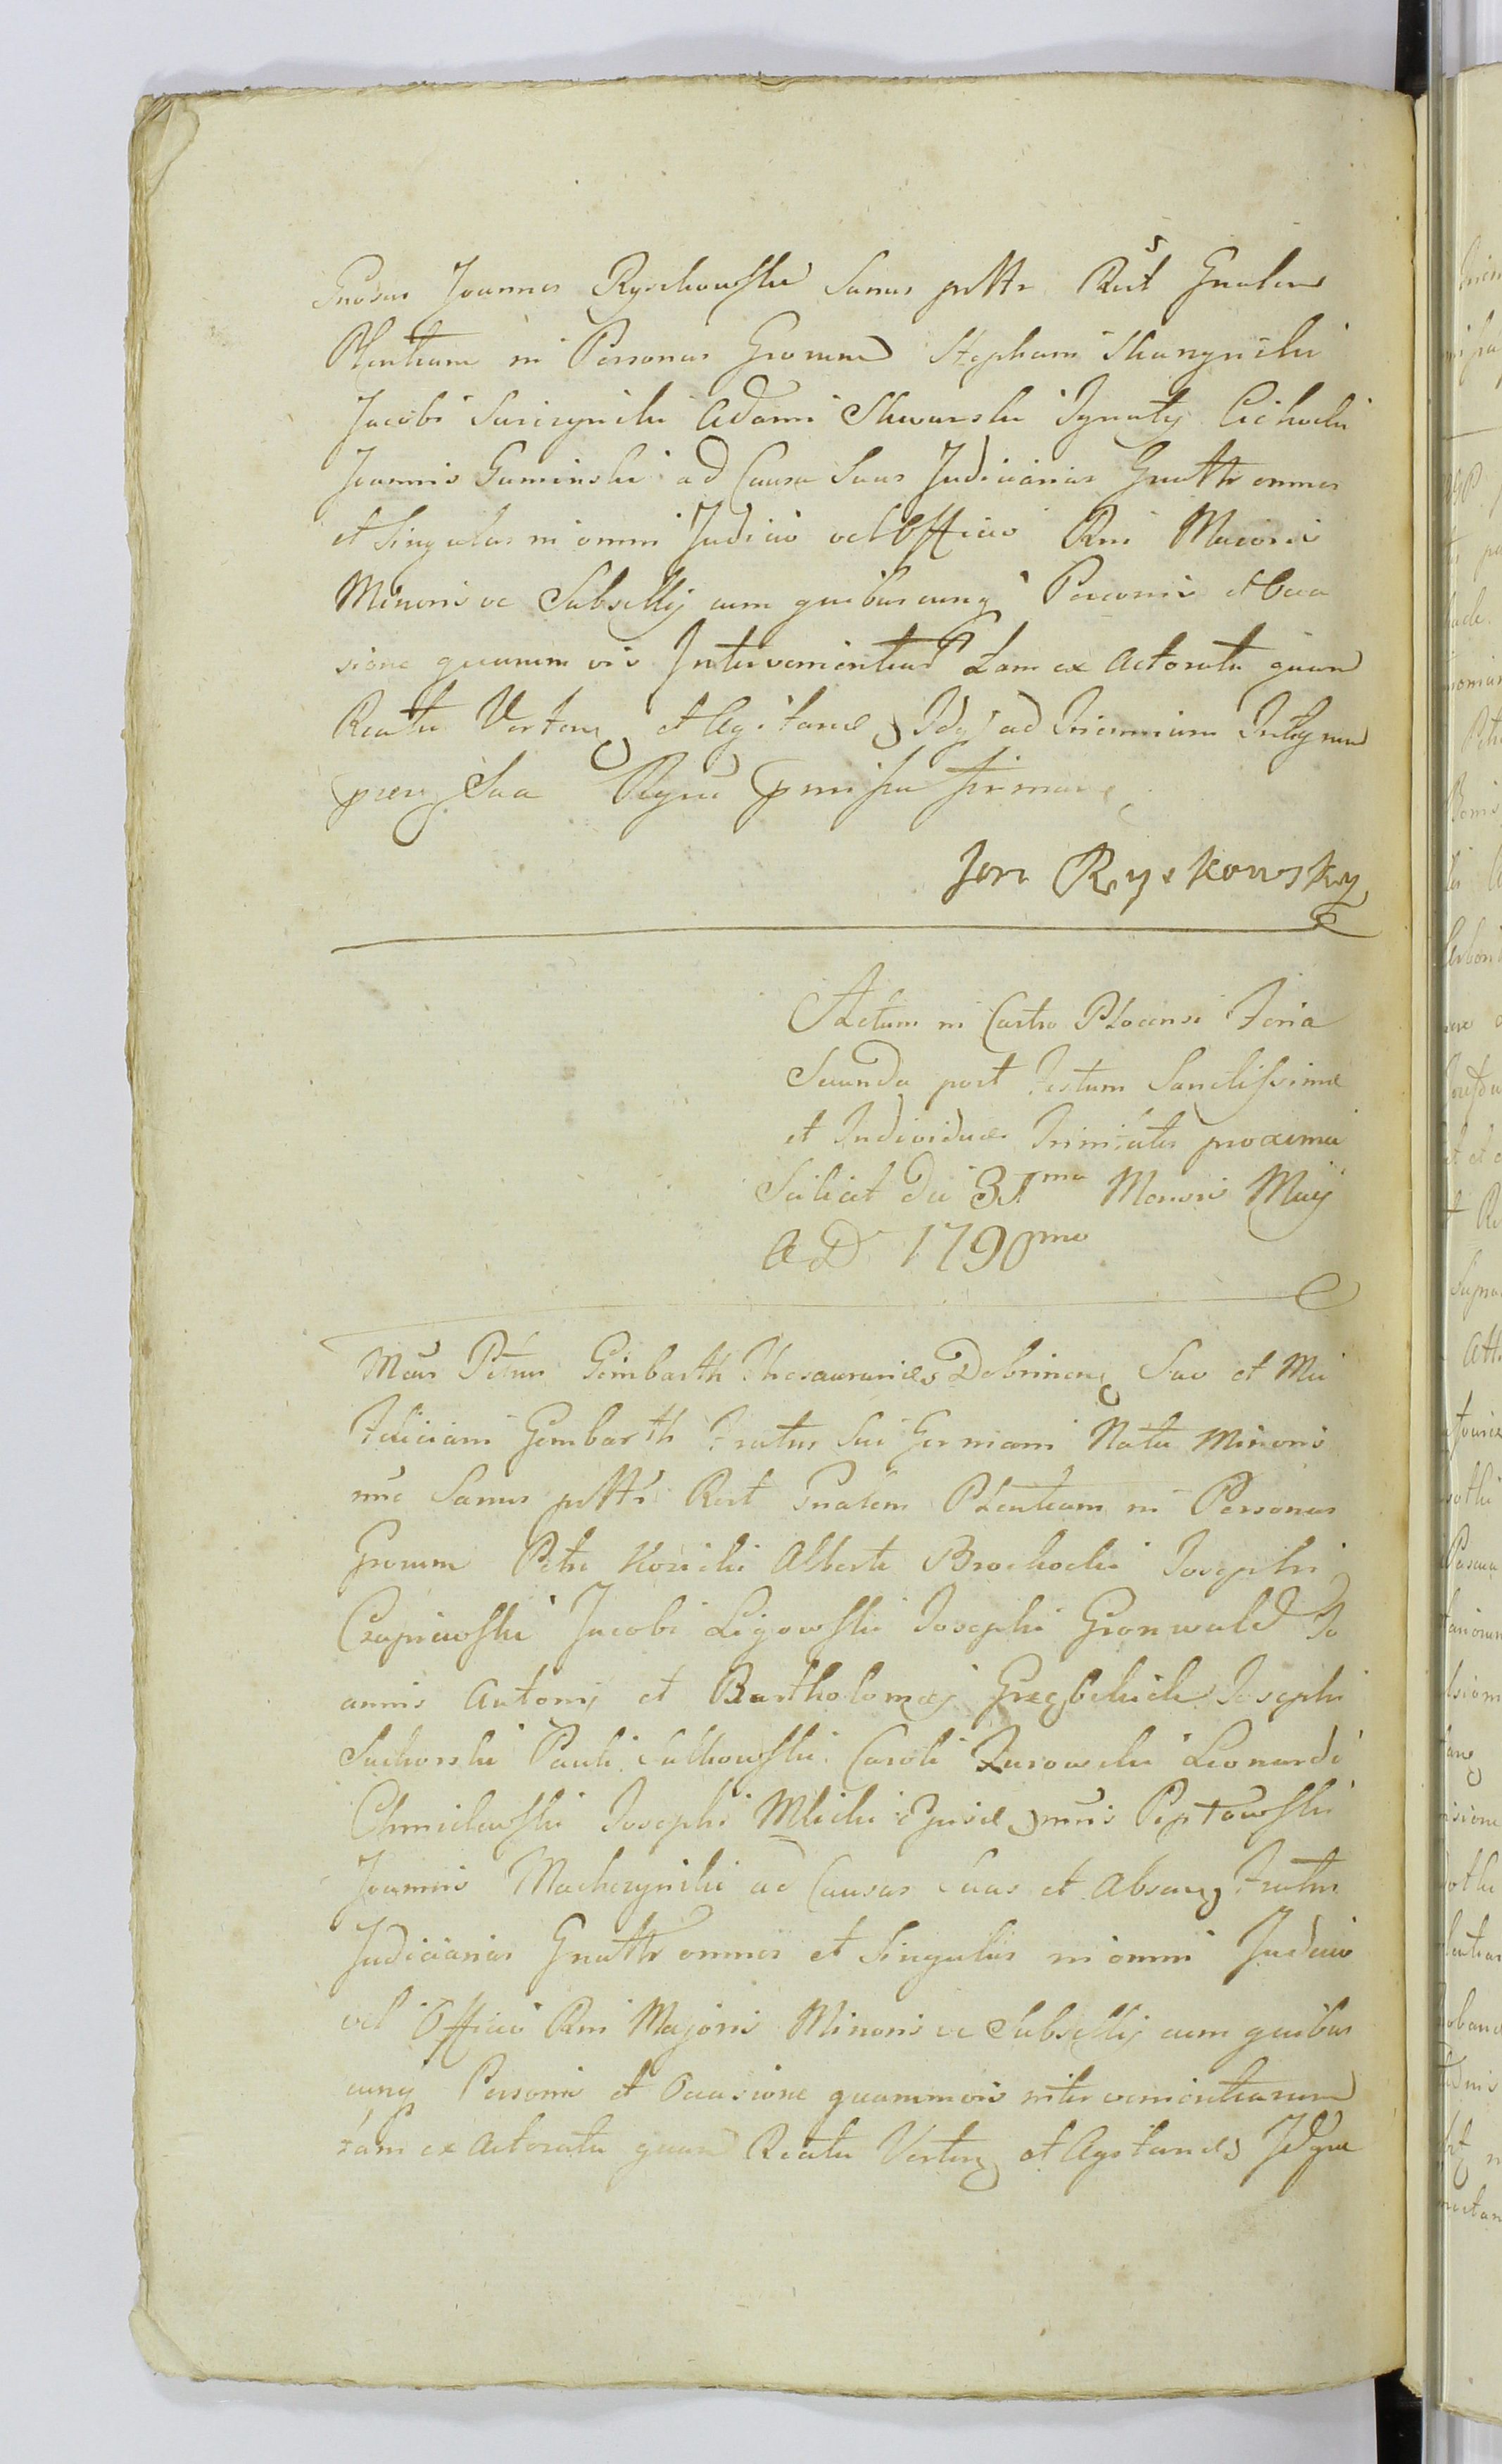 Gnosus Joannes Ryschowski Sanus pttr Rest Gnalem
Plentiam in Personas Grorum Stephani
Jacobi Adami Skwarski Ignatij Cichocki
Joannis Guminski ad Causas Suas Judiciarias Gnattr omnes
et Singulas in omni Judicio vel Officio Rni Maioris
Minoris ve Subsellij cum quibuscunq Personis et Occa
sione quarumvis Intervenientiarum tam ex Actoratu quam
Reatu Verten et Agitand Idq ad Triennium Integrum
pren Sua Rgne pmissa firmavit
Jan Ryskowsky
Actum in Castro Plocensi Feria
Secunda post Festum Sanctissimæ
et Individuæ Trinitatis proxima
Scilicet Die 31ma Mensis Maij
A D 1790mo
Mcus Petrus Gembarth Thesaurarides Dobrinen Suo et Mci
Feliciani Gembarth Fratris Sui Germani Natu Minoris
nne Sanus pttr Rest Gnalem Plentiam in Personas
Grorum Petri Kosicki Alberti Brochocki Josephi
Czapiewski Jacobi Ligowski Josephi Gronwald Jo
annis Antonij et Bartholomæj Grzębskich Josephi
Suchorski Pauli Sulkowski Caroli Zurowski Leonardi
Chmielewski Josephi Mlicki
Joannis ad Causas Suas et Absen Fratris
Judiciarias Gnattr omnes et Singulas in omni Judicio
vel Officio Rni Majoris Minoris ve Subsellij cum quibus
cunq Personis et Occasione quarumvis intervenientiarum
tam ex Actoratu quam Reatu Verten et Agitand Idque